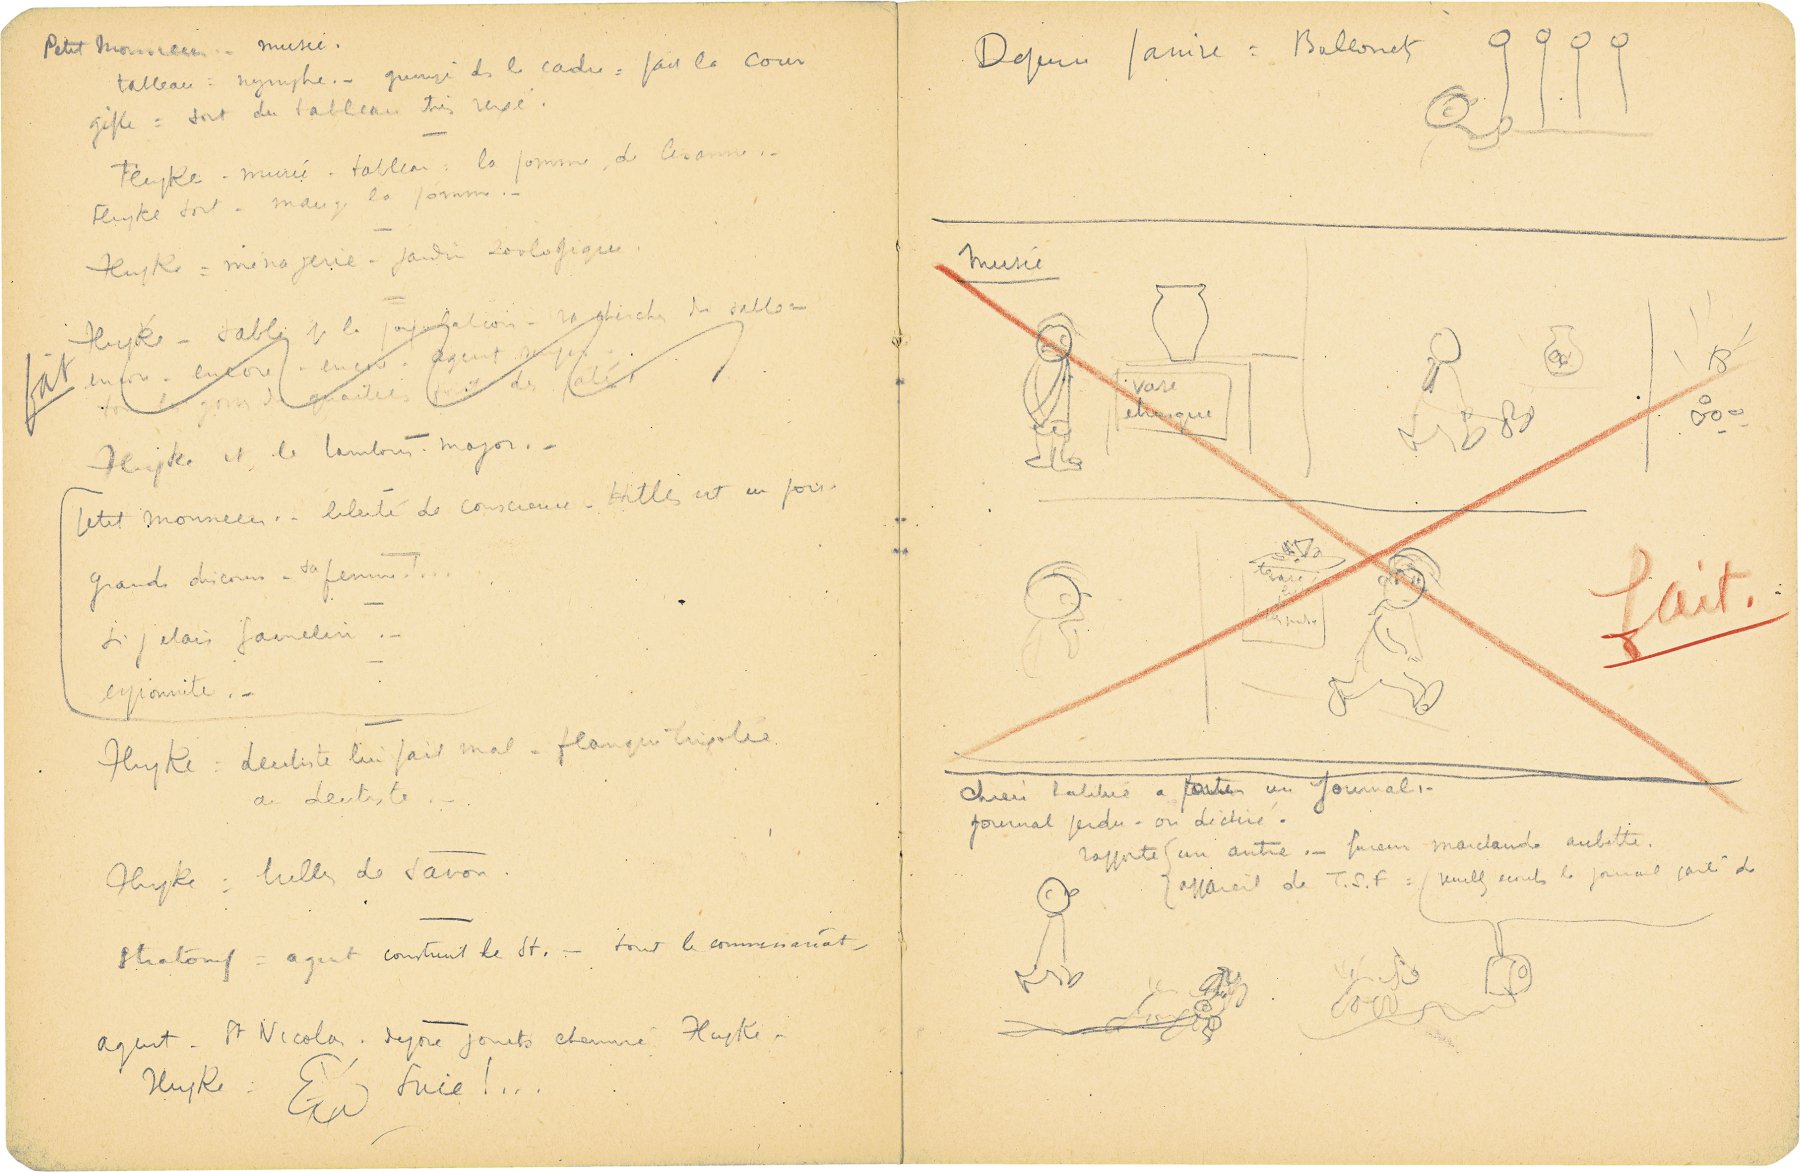 Petit Monsieur - musée.
tableau = nymphe - grimpé ds le cadre = fait la cour
gifle = sort du tableau très vexé.
Flupke - musée - tableau : la pomme de Cézanne -
Flupke sort - mange la pomme -
Flupke = ménagerie - jardin zoologique.
Flupke - sable la
encore - encore - encore - agent
des pâtés
fait
Flupke et le tambour-major -
Petit monsieur - liberté de conscience - Hitler est un
grands discours - sa femme!...
Si j'étais Gamelin -
espionnite -
Flupke = dentiste lui fait mal - flanque
au dentiste -
Flupke = bulles de savon.
Stratonef = agent construit le St. - tout le commissariat -
agent - St Nicolas - dépose jouets cheminée Flupke -
Flupke = Suie!...
= Ballonet
Musée
vase
étrusque
vase
fait.
chien habitué à porter un journal -
journal perdu - ou déchiré.
rapporte un autre - fureur marchande aubette.
appareil de T.S.F = journal parlé de